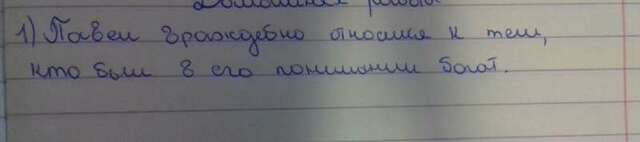 Домашняя работа
1) Павел враждебно относился к тем,
кто был в его понимании богат.